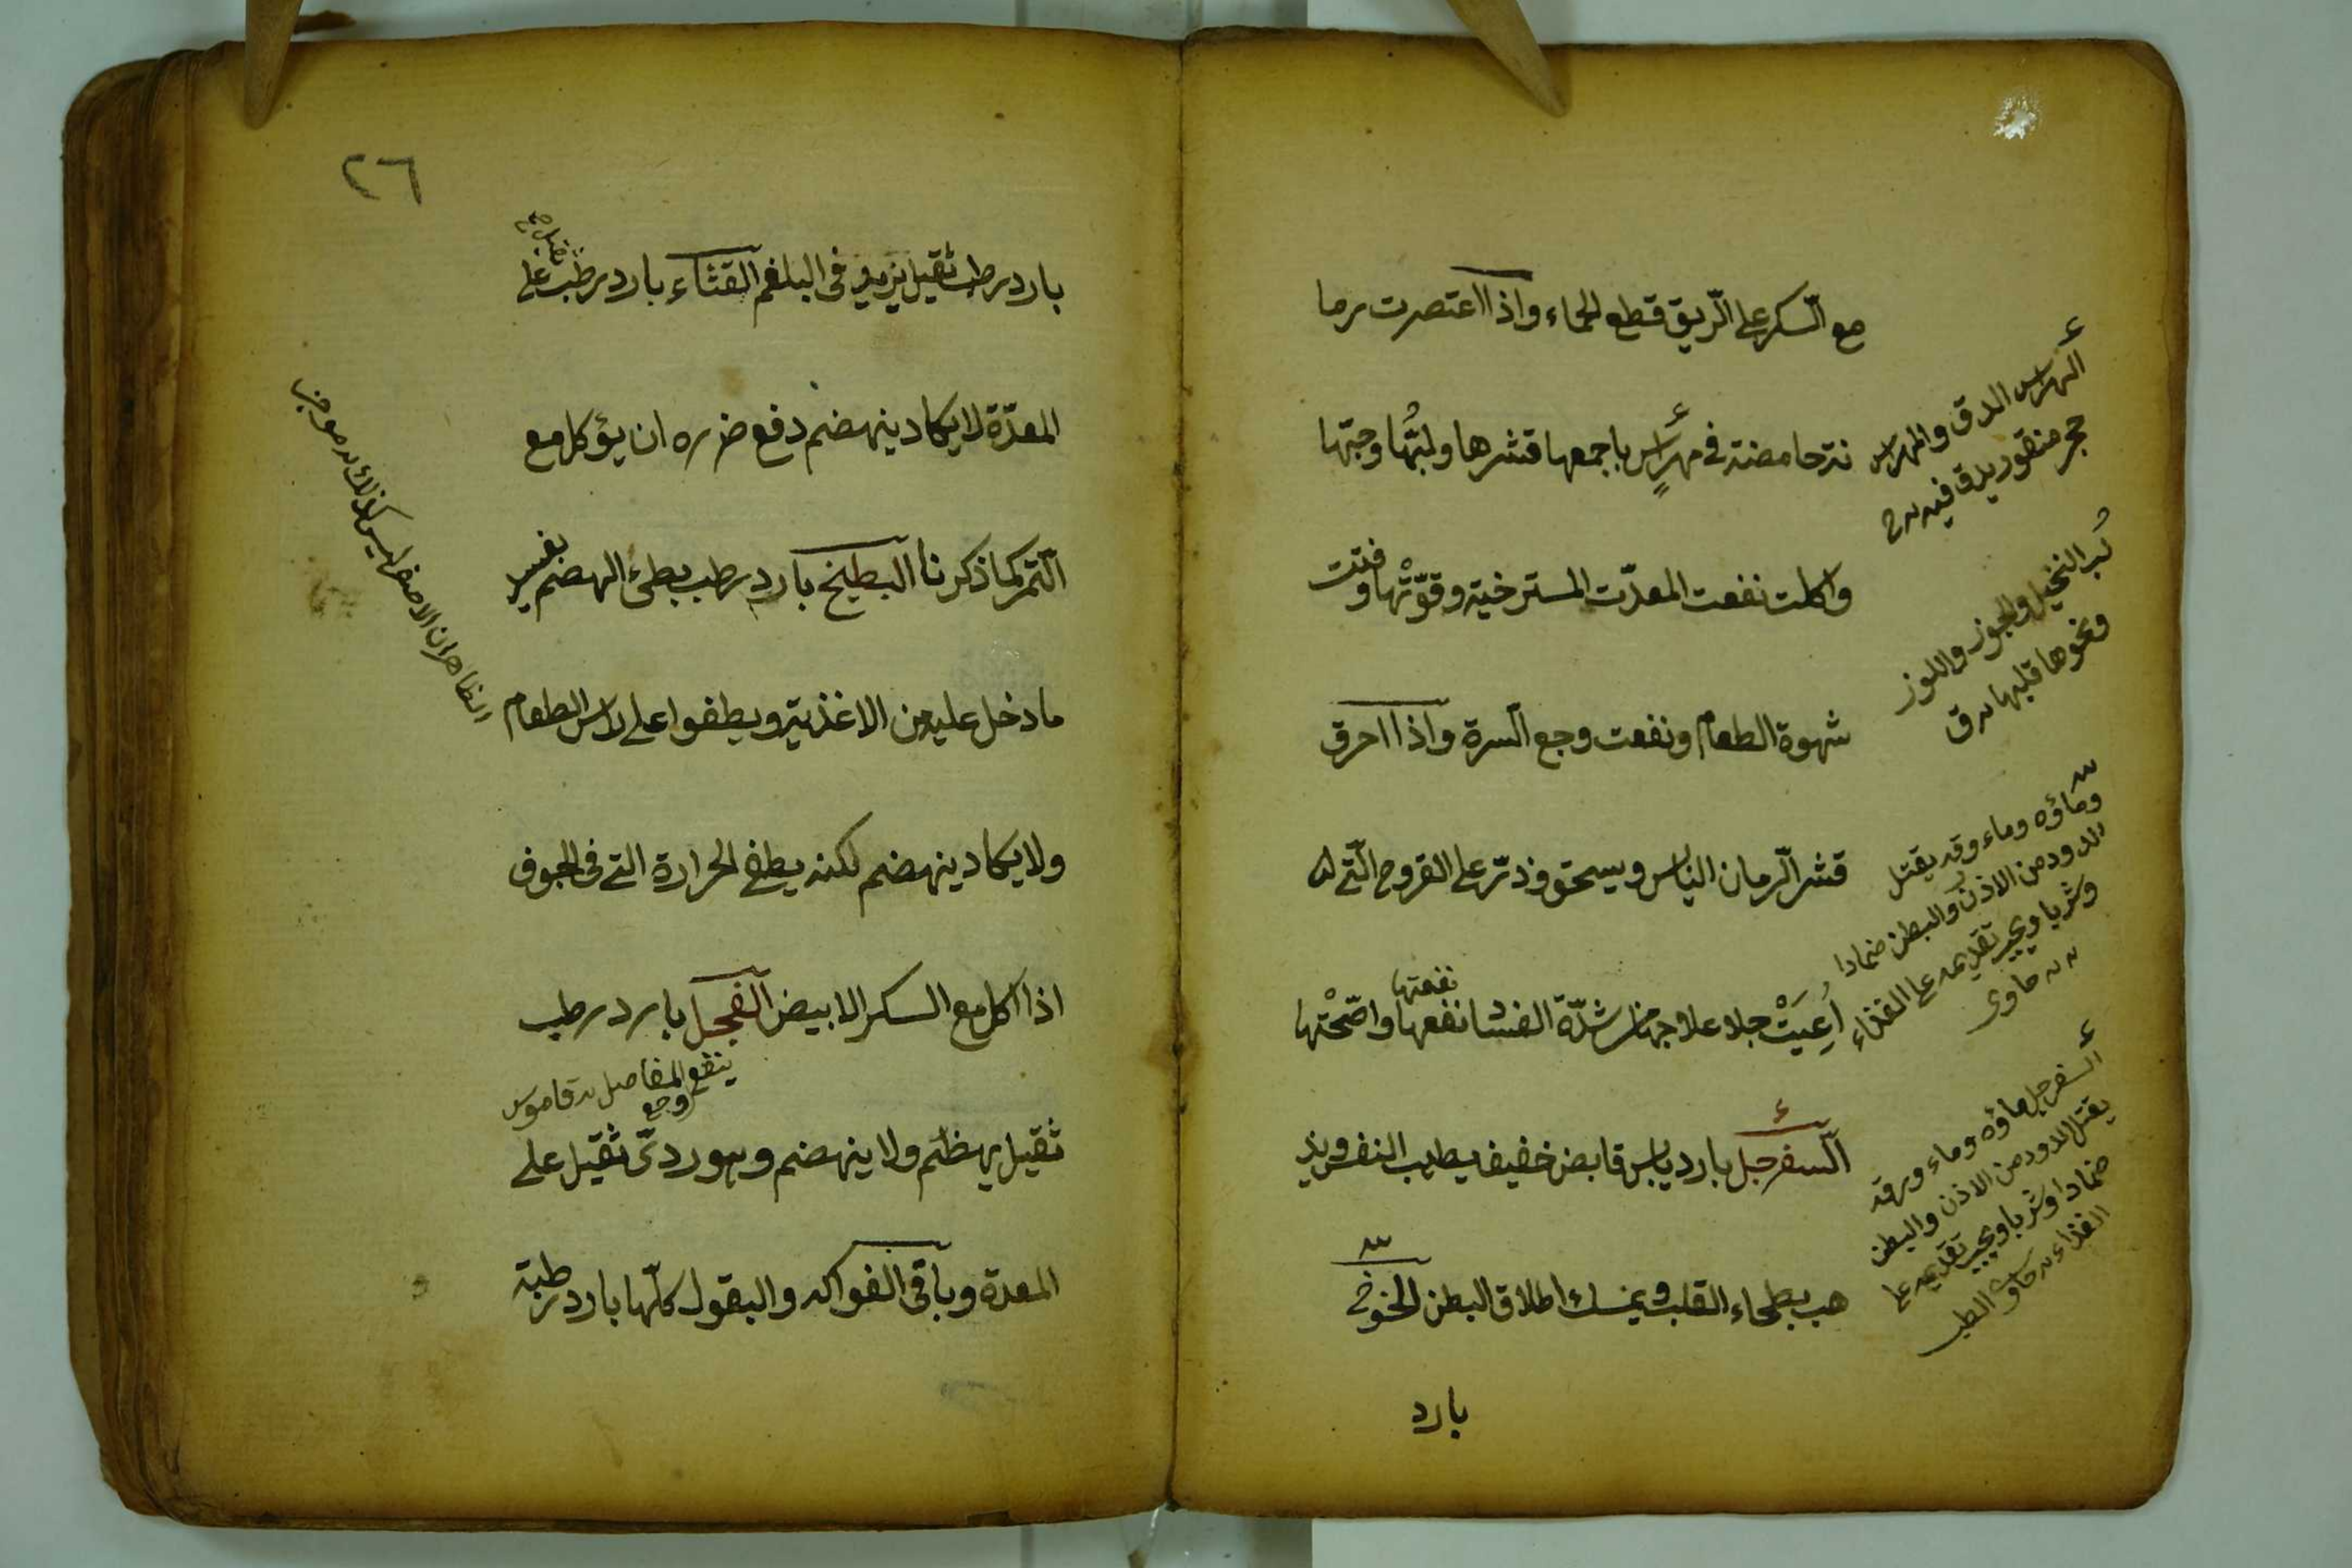 مع السّكر على الرّيق قطع الحماء واذا اعتصرت رما
نة حامضة في مهراسٍ باجمعها قشرها ولبّها وحبّها
واكلت نفعت المعدّت المسترخية وقوّتْها وفتت
شهوة الطعام ونفعت وجع السرة واذا احرق
قشر الرّمان اليابس ويسحق وذرّ على القروح الّتي لها
اُعِيَتْ جلا علاجها من شدّة الفشا نفعها واصّحْتها
نفعتها
السفرجل بارد يابس قابض خفيف يطيب النفس ويذ
هب بطحاء القلب ويمسك اطلاق البطن الخوخ
بارد
الهراس الدق والمهراس
حجر منقور يدق فيه
لُب النخيل والجوز واللوز
ونحوها قلبها
وماؤه وماء ورقه يقتل
الدود من الاذن والبطن ضمادا
وشربا ويجب تقديمه على الغذاء
حاوى
السفرجل ماؤه وماء ورقه
يقتل الدود من الاذن والبطن
ضمادا وشربا ويجب تقديمه على
الغذاء حاوى الطب
٢٦
بارد رطب ثقيل يزيد فى البلغم القثاء بارد رطب ثقيل على
المعدّة لا يكاد ينهضم دفع ضرره ان يؤكل مع
التمر كما ذكرنا البطيخ بارد رطب بطئ الهضم يفسد
ما دخل عليه من الاغذية ويطفوا على راس الطعام
ولا يكاد ينهضم لكنه يطفى الحرارة التى فى الجوف
اذا اكل مع السكر الابيض الفجل بارد رطب
ينفع وجع المفاصل قاموس
ثقيل يهظم ولا ينهضم وهو ردىّ ثقيل على
المعدة وباقى الفواكه والبقول كلّها بارد رطبة
الظاهر ان الاصفر ليس كذلك موجز